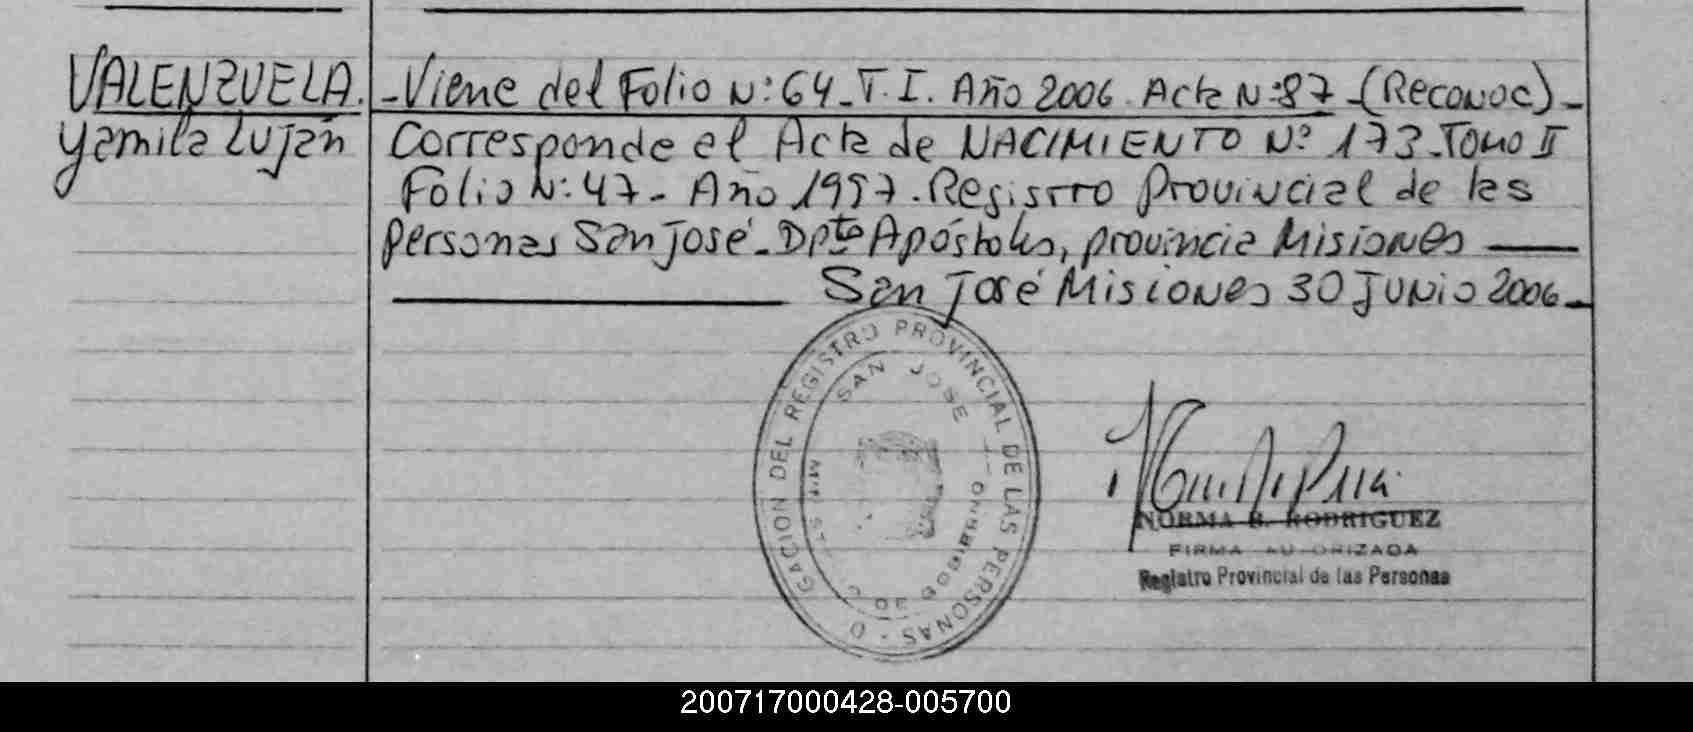 VALENZUELA.
Yamila Luján
-Viene del Folio N:64-T.I. Año 2006. Acta N:87-(Reconoc)-
Corresponde el Acta de NACIMIENTO Nº 173-Tomo II
Folio N:47- Año 1997. Registro Provincial de las
Personas San José-Dpto Apóstoles, provincia Misiones
San José Misiones 30 Junio 2006-
GACION DEL REGISTRO PROVINCIAL DE LAS PERSONAS - D
SAN JOSE
DE GOBIERNO
NORMA B. RODRIGUEZ
FIRMA AUTORIZADA
Registro Provincial de las Personas
200717000428-005700